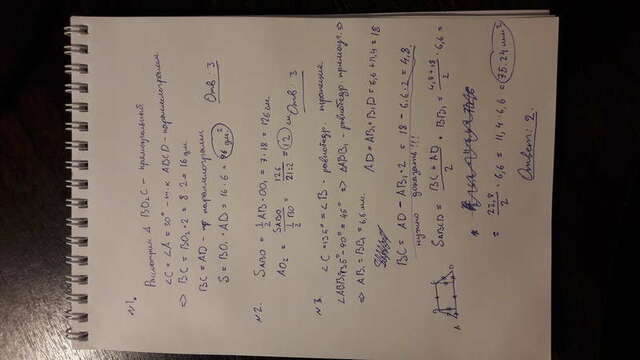 №1.
Рассмотрим Δ BO₂C - прямоугольный
∠C = ∠A = 30° - т.к ABCD - параллелограмм
⇒ BC = BO₂ · 2 = 8 · 2 = 16 дм.
BC = AD - пр параллелограмм
S = BO₁ · AD = 16 · 6 = 96 дм.² Отв: 3
№2. SАВО = 1/2 AB · OO₁ = 7 · 18 = 126 см.
AO₂ = SАВО / 1/2 BO = 126 / 21:2 = 12 см Отв: 3
№3
∠C = 135° = ∠B - равнобедр. трапеция
∠ABB₁ 135° - 90° = 45° ⇒ ΔABB₁ - равнобедр прямоуг. ⇒
⇒ AB₁ = BB₁ = 6,6 мм. AD = AB₁ + B₁D = 6,6 + 11,4 = 18
BC = AD - AB₁ · 2 = 18 - 6.6 · 2 = 4,8.
нужно доказать!!!
SABCD = BC + AD / 2 · BB₁ = 4,8 + 18 / 2 · 6,6 =
= 22,8 / 2 · 6,6 = 11,4 · 6,6 = 75.24 мм²
Ответ: 2.